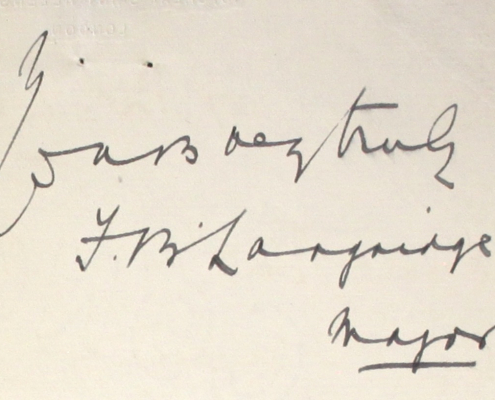 LONDON
Yours very truly
F. B. Langridge
Major